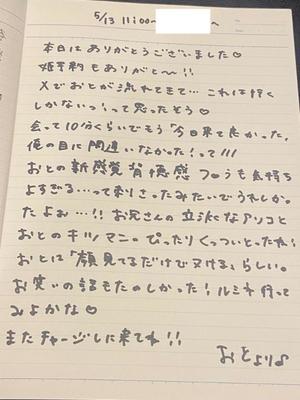 5/13 11:00~ へ
本日はありがとうございました♡
姫予約もありがと〜!!
Xでおとが流れてきて…これは行く
しかないっ!って思ったそう♡
会って10分くらいでもう「今日来て良かった,
俺の目に間違いなかった!って///
おとの新感覚背徳感フ○ラも気持ち
よすぎる…って刺さったみたいでうれしかっ
たよぉ…!! お兄さんの立派なアソコと
おとのキツマン。ぴったりくっついとったね!
おとは「顔見てるだけでヌける」らしい。
お笑いの話もたのしかった!ルミネ行って
みよかな♡
またチャージしに来てね!!
おとより♪